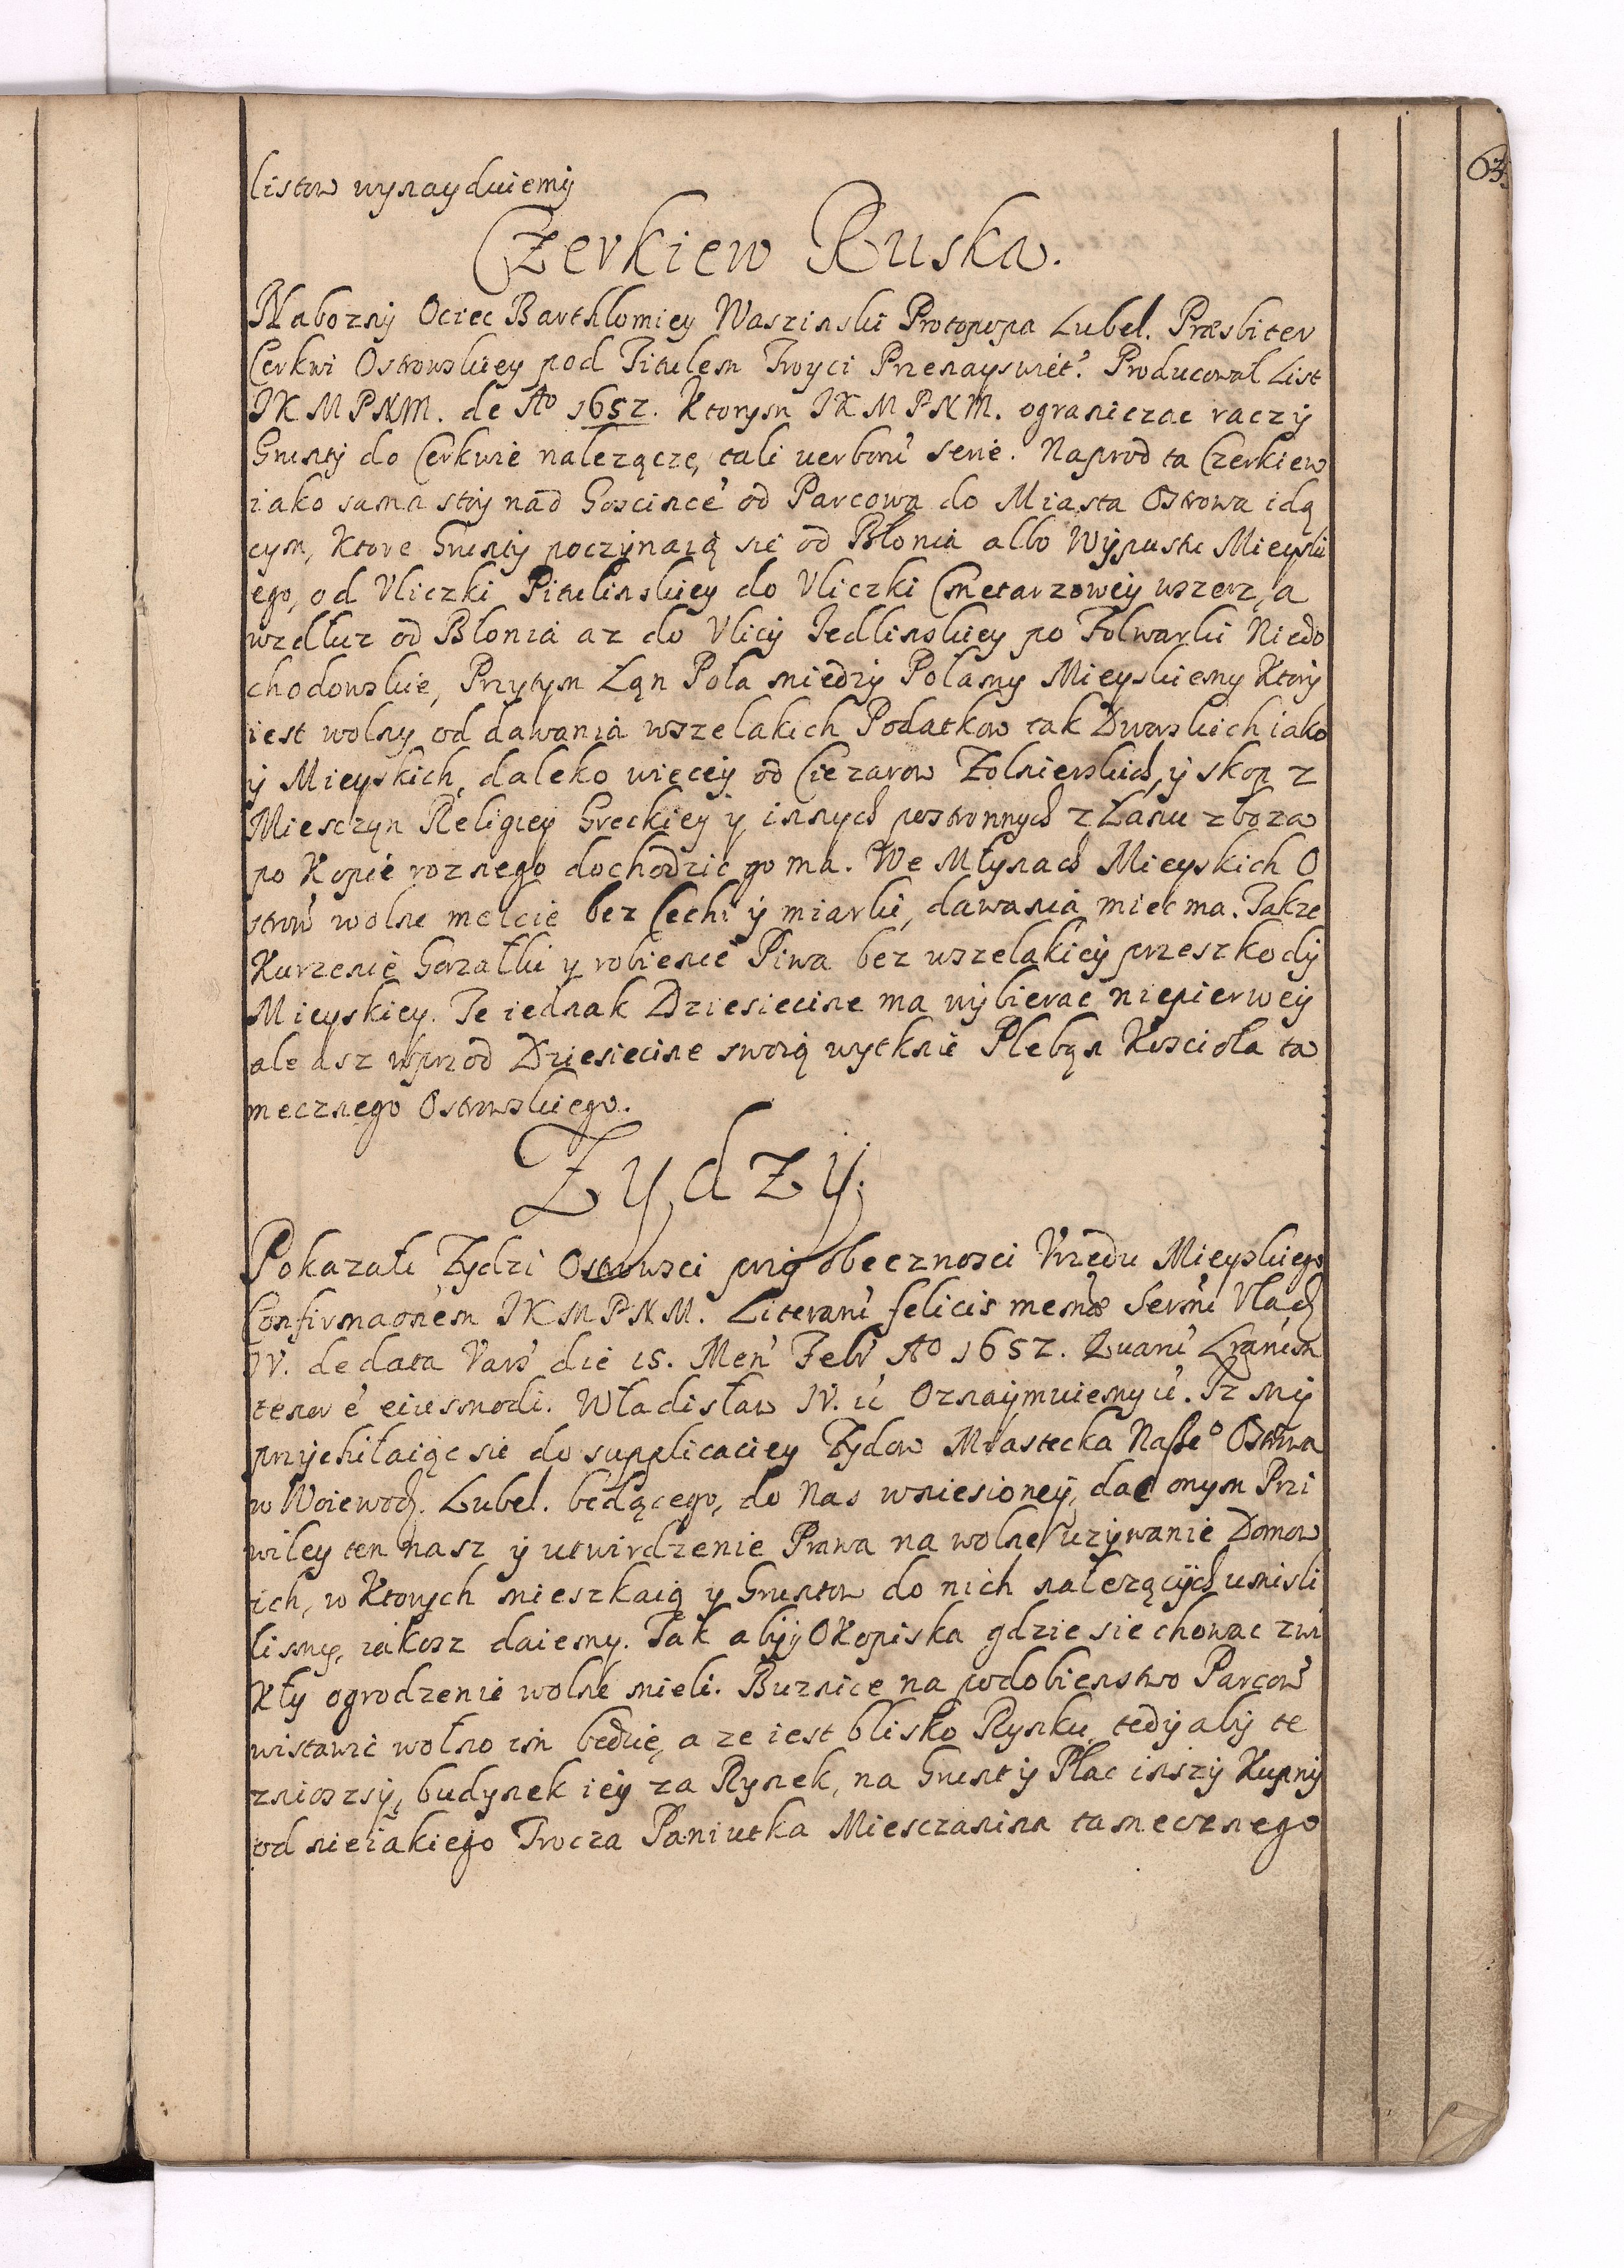 63
listow wynayduiemy
Czerkiew Ruska.
Nabozny Ociec Barthlomiey Waszinski Protopopa Lubel. Præsbiter
Cerkwi Ostrowskiey pod Titulem Troyci Przenayswiet? Producował List
JKMPNM. de Ao 1652. Ktorym JKMPNM. ograniczac raczy
Grunty do Cerkwie nalezącze, tali verborũ serie. Naprod ta Czerkiew
iako sama stoy nad Goscince od Parcowa do Miasta Ostrowa idą
cym, Ktore Grunty poczynaią sie od Błonia albo Wypustu Mieyski
ego, od Vliczki Pitulinskiey do Vliczki Cmetarzowey wszerz, a
wzdłuz od Błonia az do Vlicy Jedlinskiey po Folwarki Niedo
chodowskie, Przytym Łąn Pola miedzy Polamy Mieyskiemy Ktory
iest wolny od dawania wszelakich Podatkow tak Dworskich iako
y Mieyskich, daleko więcey od Ciezarow Zolnierskich, y skop z
Miesczyn Religiey Greckiey y innych postronnych z Łanu zboza
po Kopie roznego dochodzic go ma. We Młynach Mieyskich O
strow wolne melcie bez Cechi y miarki, dawania miec ma. Takze
Kurzenie Gorzałki y robienie Piwa bez wszelakiey przeszkody
Mieyskiey. Te iednak Dziesiecine ma wybierac niepierwey
ale asz wprzod Dziesiecine swoią wytknie Pleban Kosciola ta
mecznego Ostrowskiego.
Zydzy.
Pokazali Zydzi Ostrowsci przy obecznosci Vrzedu Mieyskiego
Confirmaonem JKMPNM. Literarũ felicis memoæ Sermi Vlad
IV. de data Vars die 15. Men Febr Ao 1652. Quarũ
tenor é eiusmodi. Władisław IV. ú Oznaymuiemy ú. Iz my
przychilaiąc sie do supplicaciey Zydow Miastecka Naßeo Ostrowa
w Woiewod. Lubel. będącego, do Nas wniesioney, dac onym Pri
wiley ten nasz y utwirdzenie Prawa na wolne uzywanie Domow
ich, w Ktorych mieszkaią y Gruntow do nich nalezących umisli
lismy, iakosz daiemy. Tak aby y Okopiska gdzie sie chowac zwi
Kły ogrodzenie wolne mieli. Buznice na podobienstwo Parcow
wistawic wolno im będzie, a ze iest blisko Rynku, tedy aby te
zniozsy, budynek iey za Rynek, na Grunt y Plac inszy Kupny
od nieiakiego Trocza Paniutka Miesczanina tamecznego